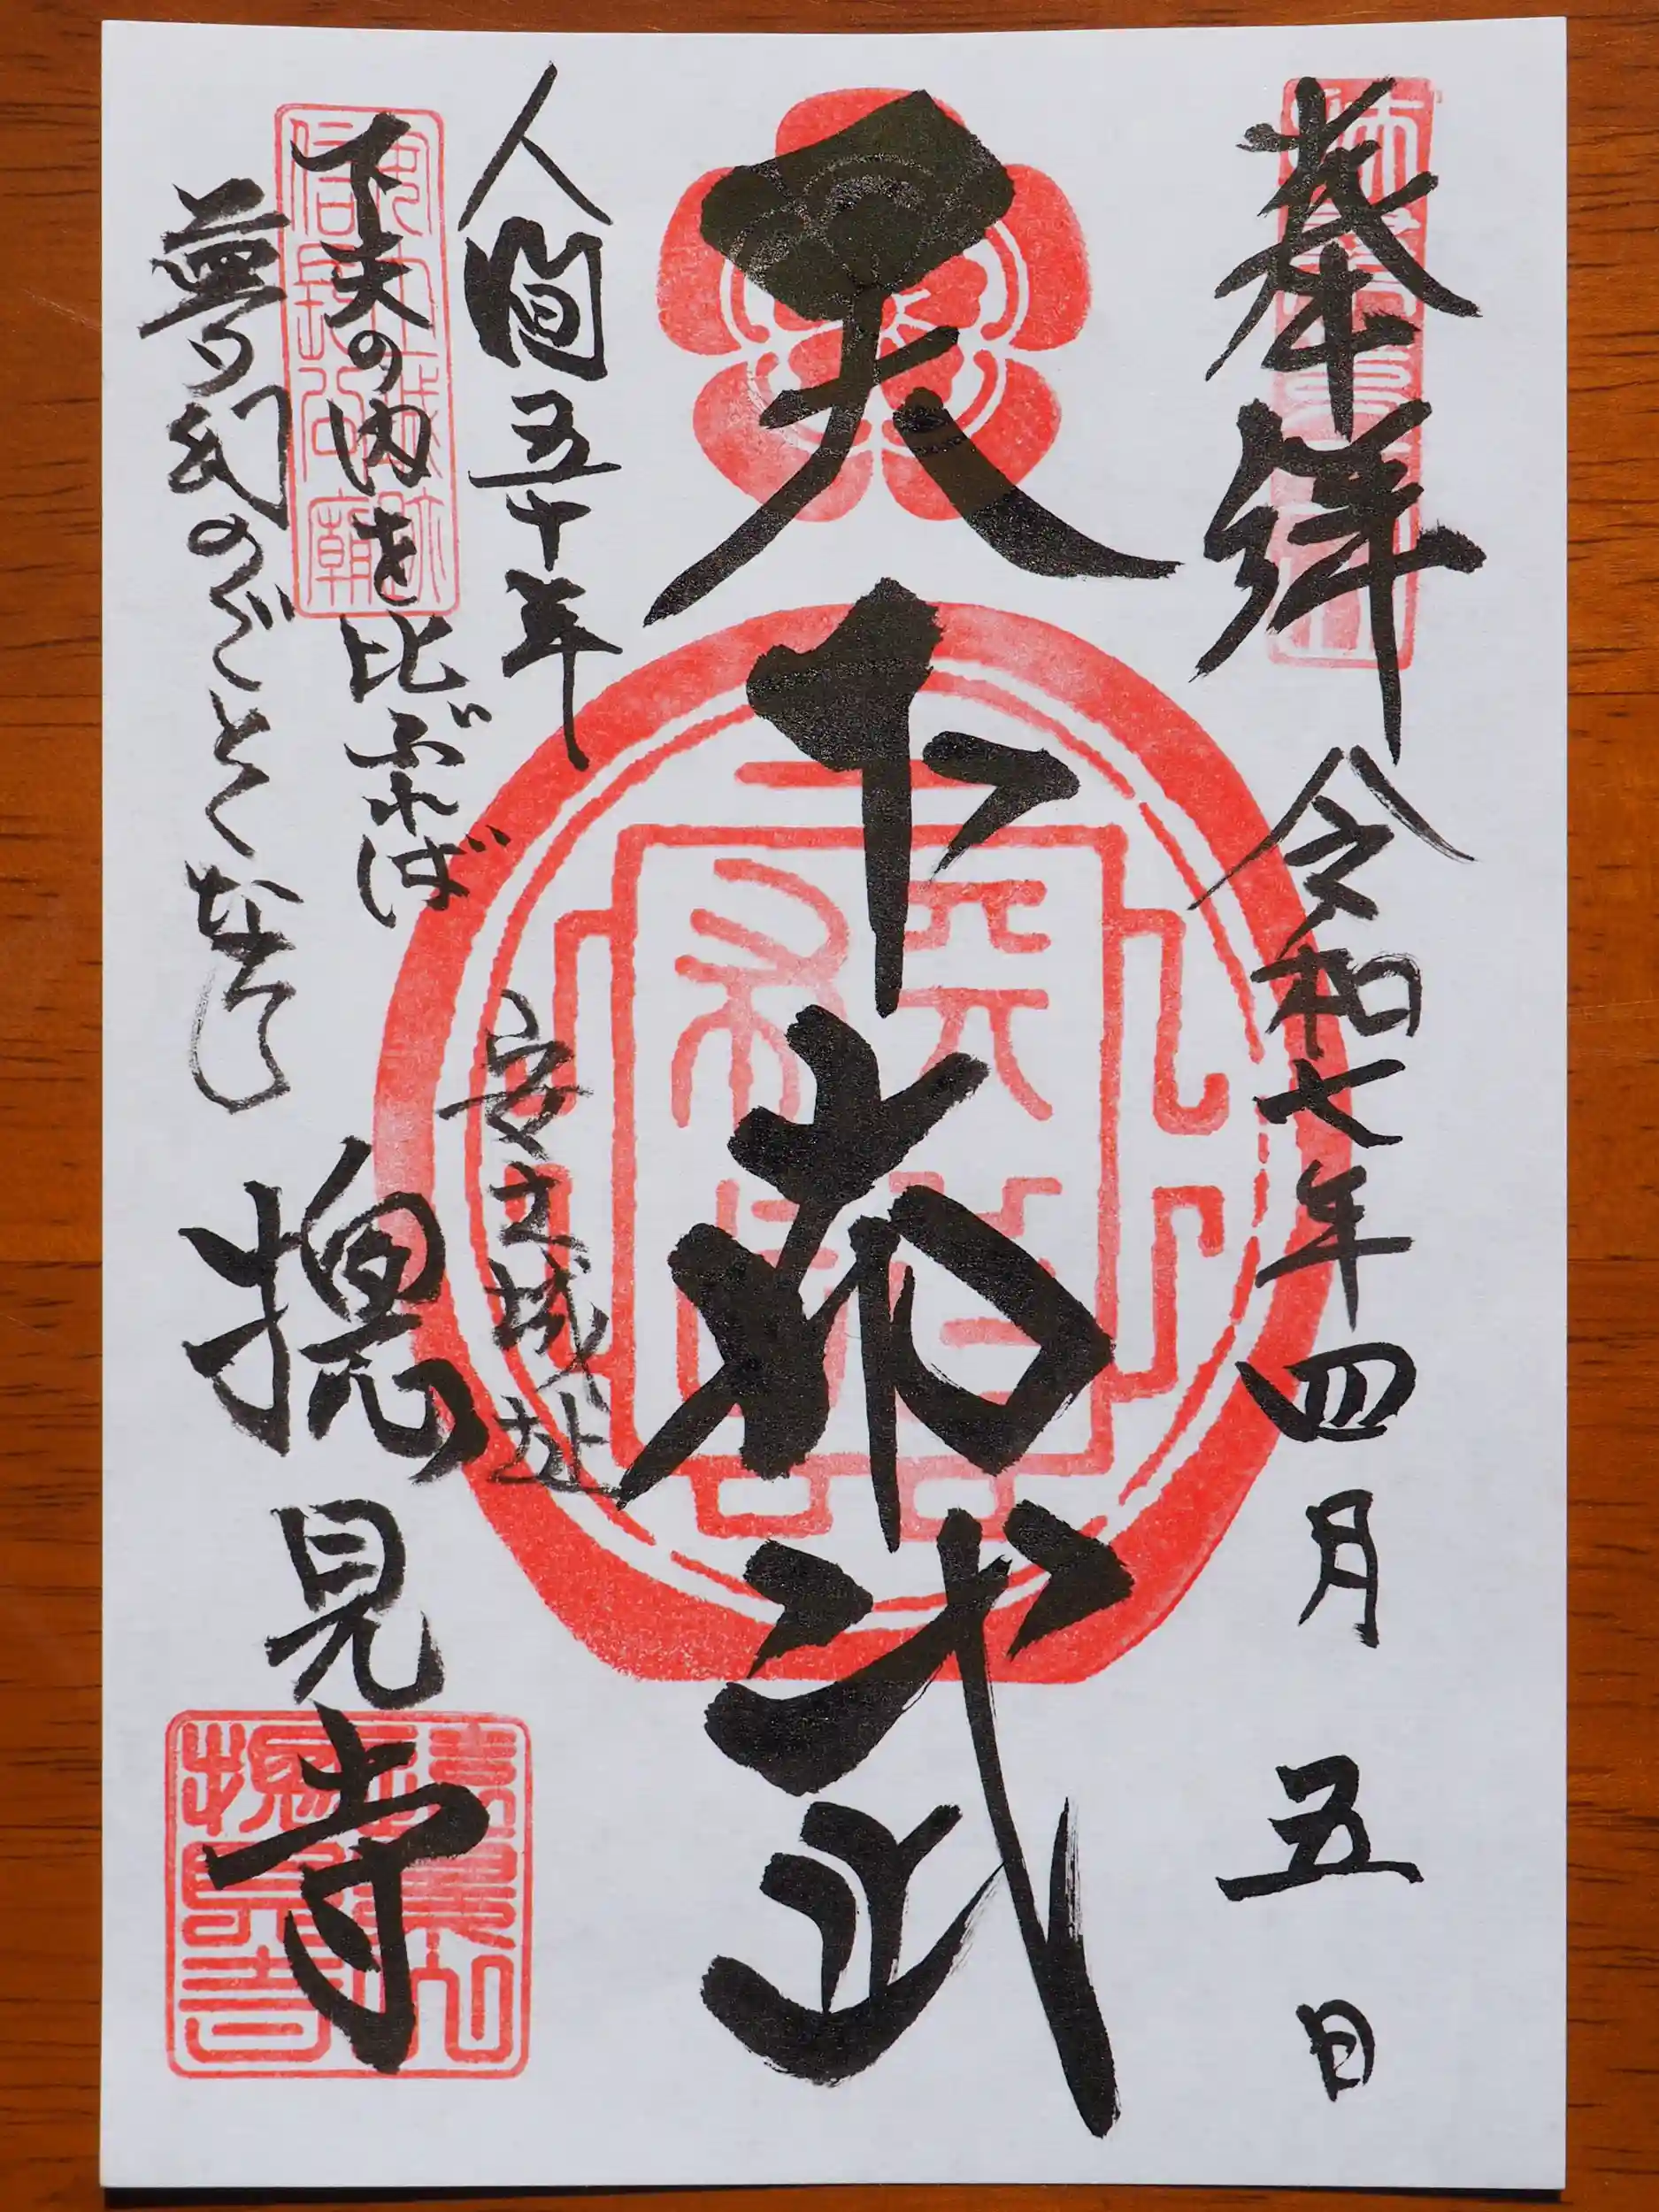 奉拝 令和七年四月五日
天下布武
人間五十年
下天の内を比ぶれば
夢幻のごとくなり
安土城址
摠見寺
安土城址
信長公廟
摠見寺